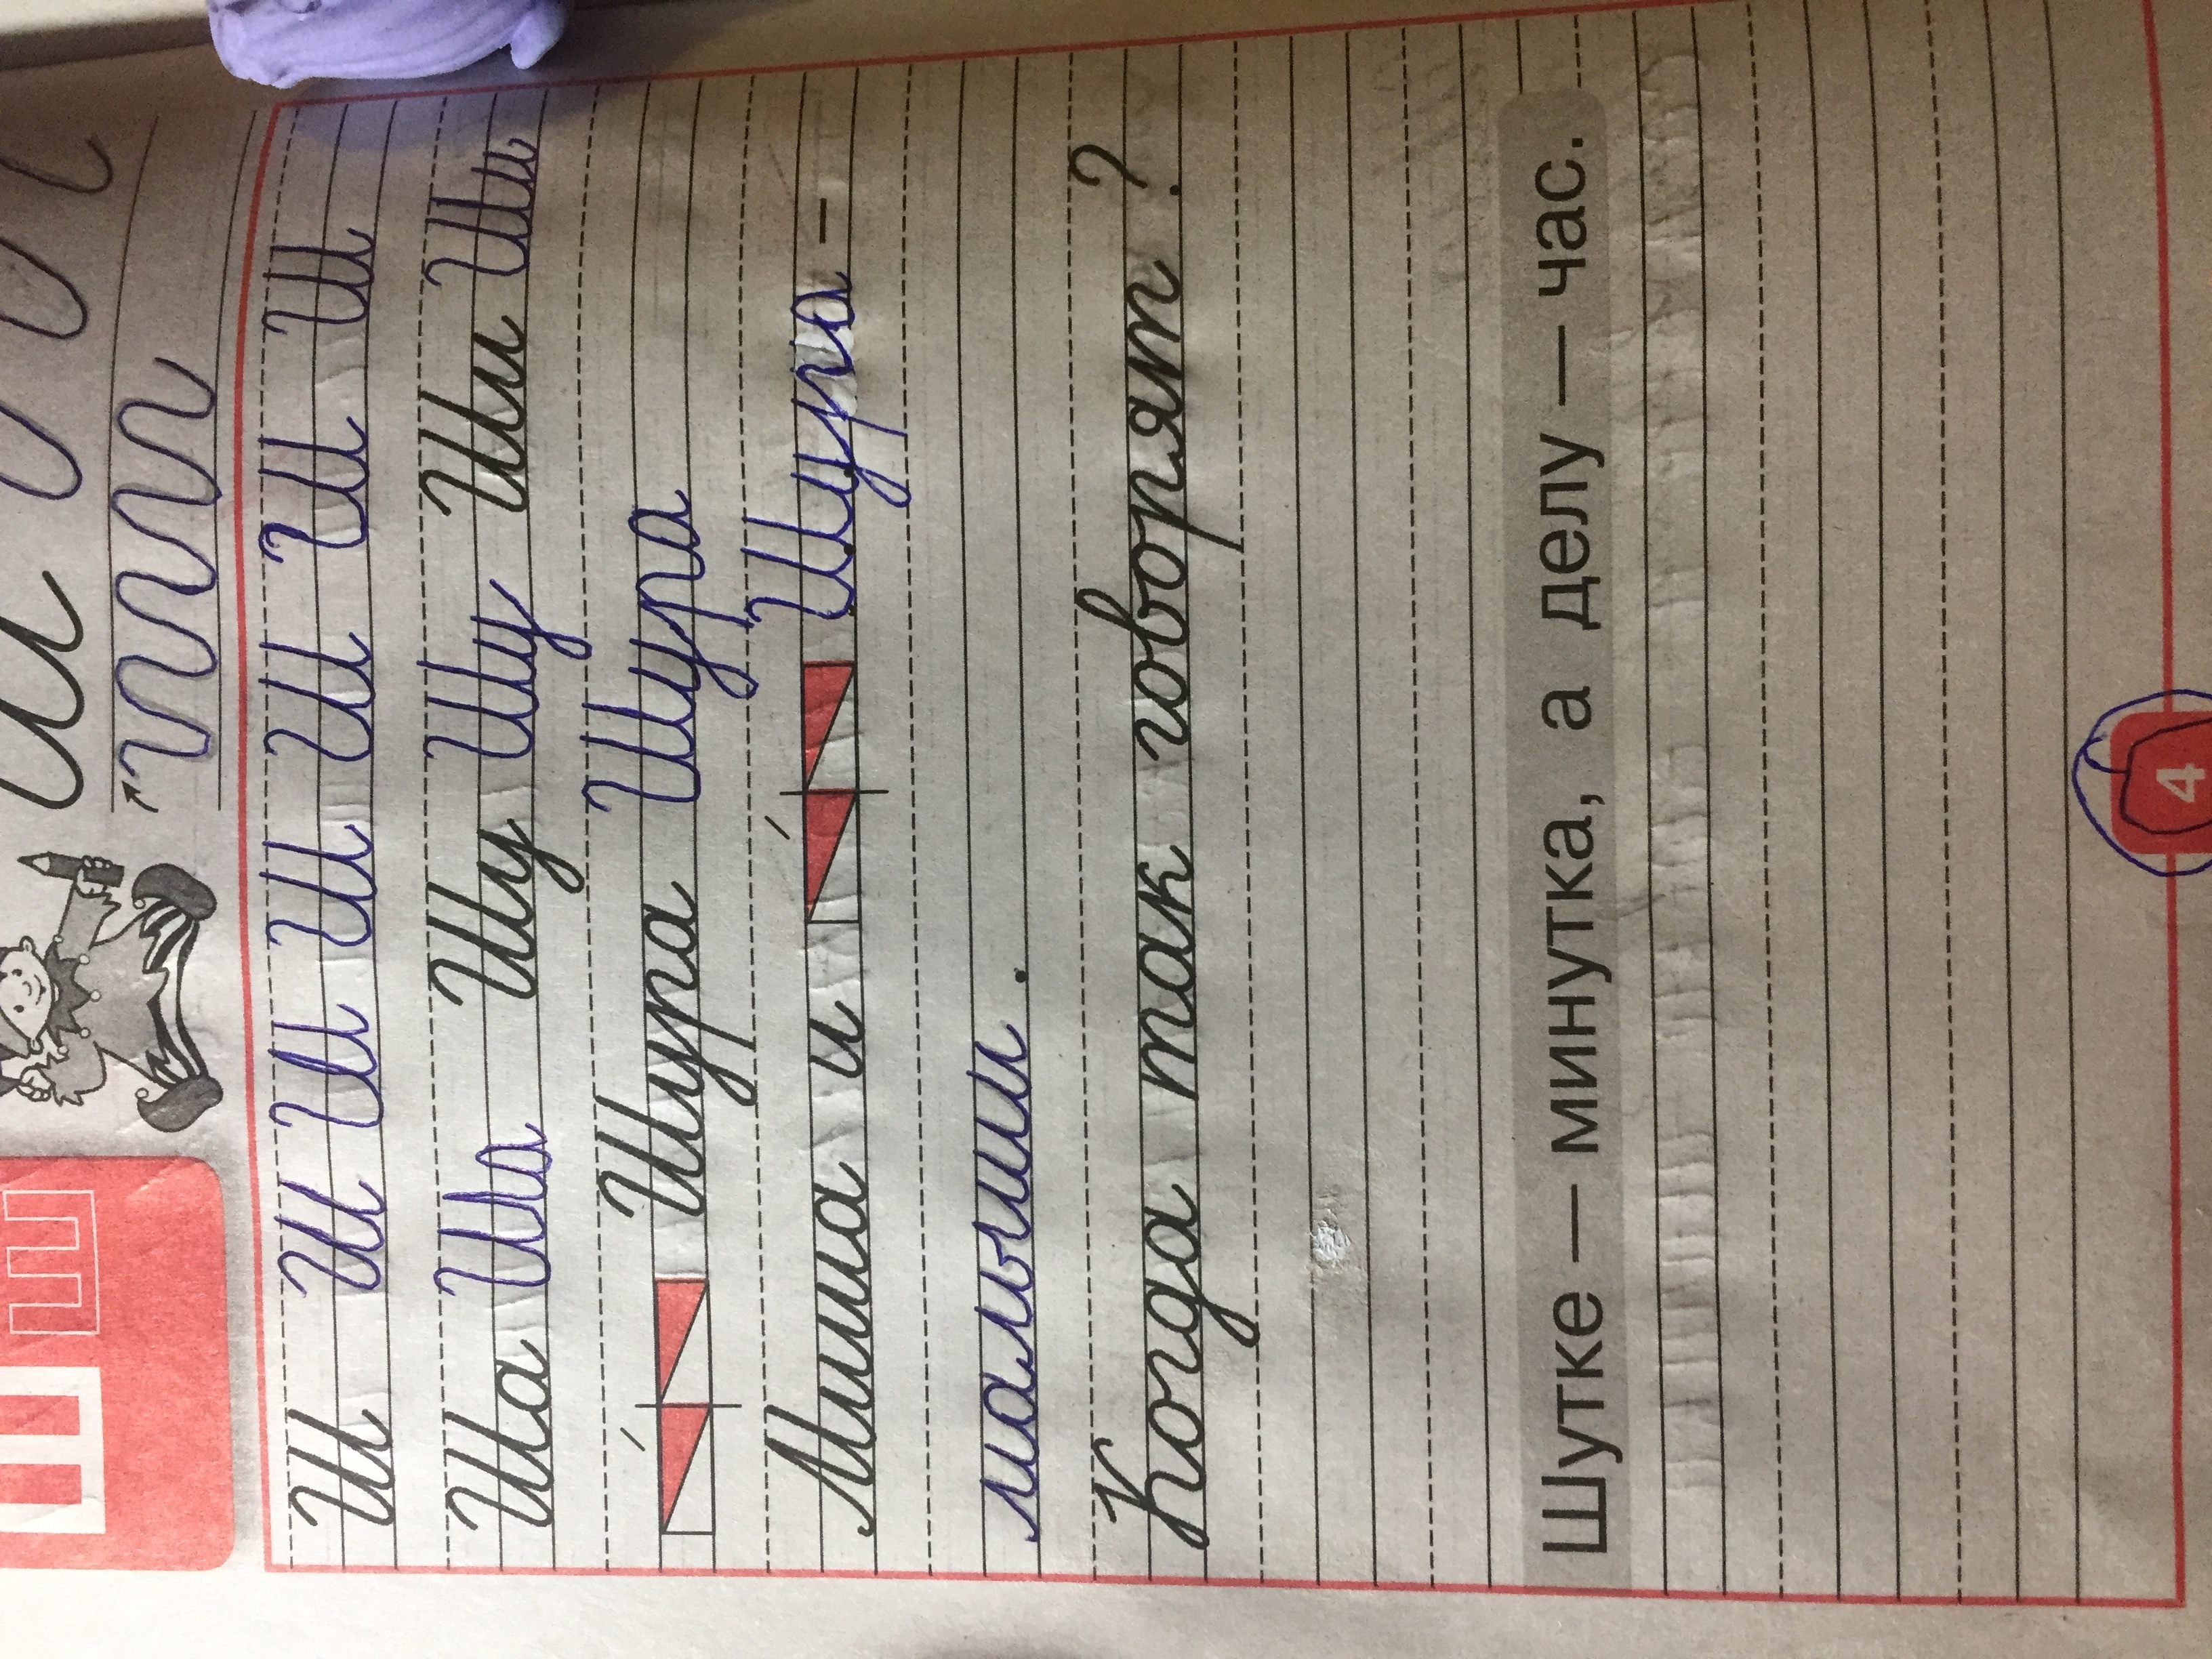 Ш Ш
ш
Ш Ш Ш Ш Ш Ш Ш
Ша Ша Шу Шу Ши Ши
Шура Шура
Миша и Шура –
малыши.
Когда так говорят?
Шутке — минутка, а делу — час.
4